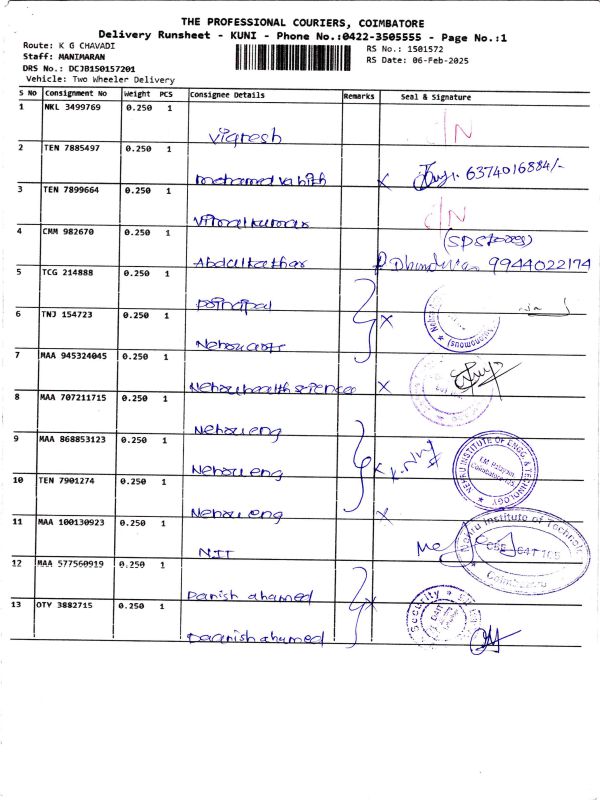 THE PROFESSIONAL COURIERS, COIMBATORE
Delivery Runsheet - KUNI - Phone No.:0422-3505555 - Page No.:1
Route: K G CHAVADI
RS No.: 1501572
Staff: MANIMARAN
RS Date: 06-Feb-2025
DRS No.: DCJB150157201
Vehicle: Two Wheeler Delivery
S No Consignment No Weight PCS Consignee Details Remarks Seal & Signature
1 NKL 3499769 0.250 1
Vignesh D/N
2 TEN 7885497 0.250 1
mohamed vahith x 6374016884/-
3 TEN 7899664 0.250 1
Vimalkumar D/N
4 CMM 982670 0.250 1
Abdulkathar (SDStores) 9944022174
5 TCG 214888 0.250 1
principal
6 TNJ 154723 0.250 1 x
Nehru arts
7 MAA 945324045 0.250 1
Nehru health sciences x
8 MAA 707211715 0.250 1
Nehru eng
9 MAA 868853123 0.250 1
Nehru eng x
NEHRU INSTITUTE OF ENGG. & TECHNOLOGY
T.M. Palayam
Coimbatore-105
10 TEN 7901274 0.250 1
Nehru eng x
11 MAA 100130923 0.250 1
NIT
Nehru Institute of Technology
CBE 641 105
Coimbatore
12 MAA 577560919 0.250 1
Danish ahamed
13 OTY 3882715 0.250 1 x
Daanish ahamed
Security